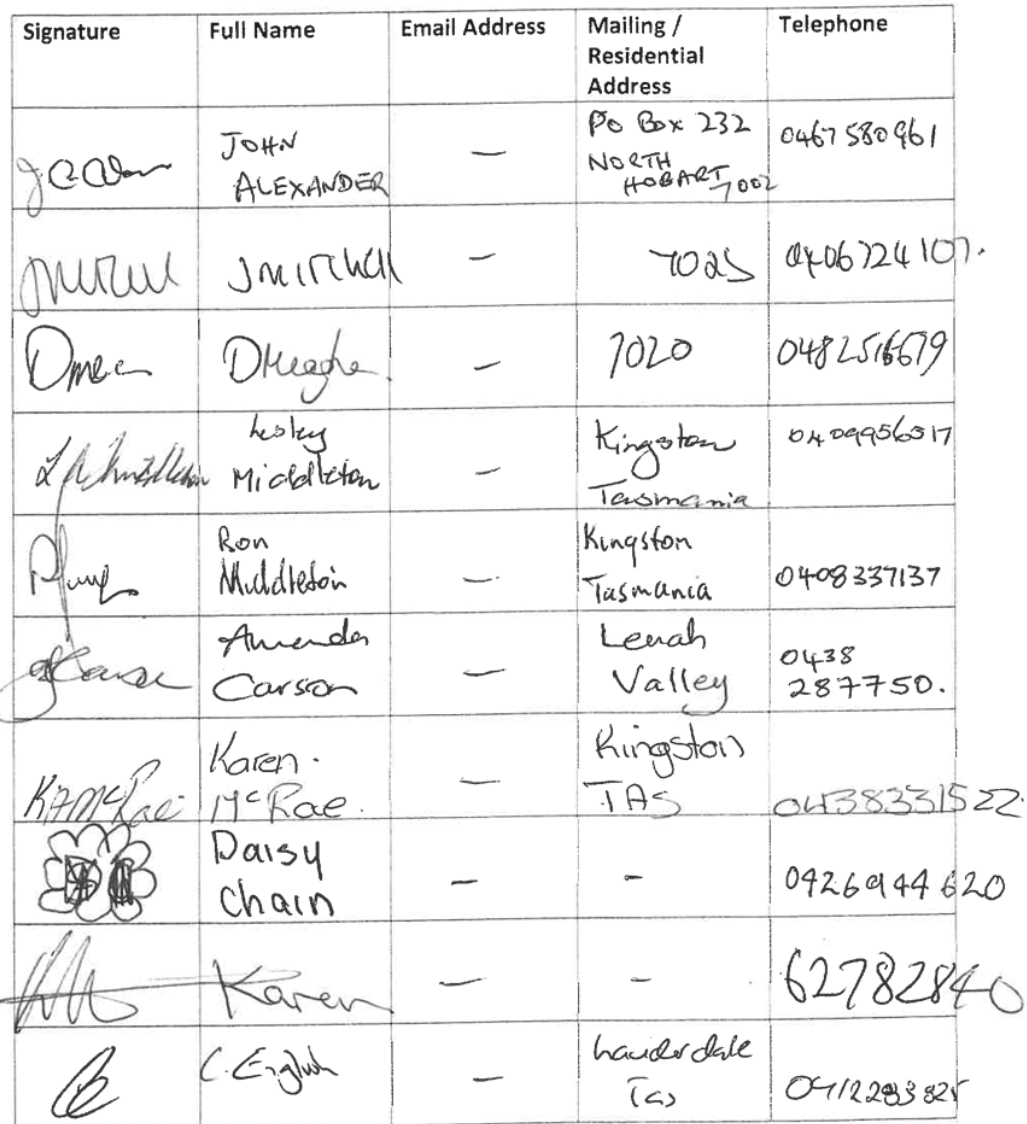 Signature Full Name Email Address Mailing / Residential Address Telephone
JOHN ALEXANDER — PO Box 232 NORTH HOBART 7002 0467 580 961
J MITCHELL — 7025 0406724107.
D Meaghe — 7020 0482516679
Lesley Middleton — Kingston Tasmania 0409956517
Ron Middleton — Kingston Tasmania 0408337137
Amanda Carson — Lenah Valley 0438 287750.
KAMcRae Karen. McRae. — Kingston TAS 0438331522.
Daisy Chain — - 0426944620
Karen — - 62782840
C. English — Lauderdale Tas